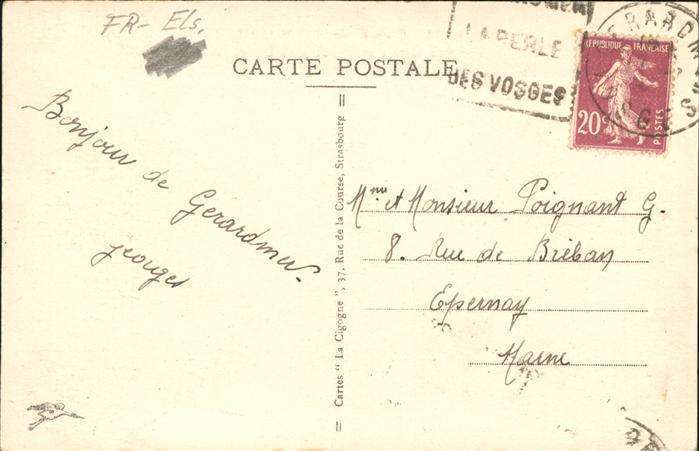 FR- Els.
CARTE POSTALE
LA PERLE
DES VOSGES
REPUBLIQUE FRANÇAISE
20c
POSTES
Bonjour de
Gerardmer
georges
Mme et Monsieur Poignant G.
8. Rue de Bieban
Epernay
Marne
Cartes " La Cigogne ", 37, Rue de la Course, Strasbourg